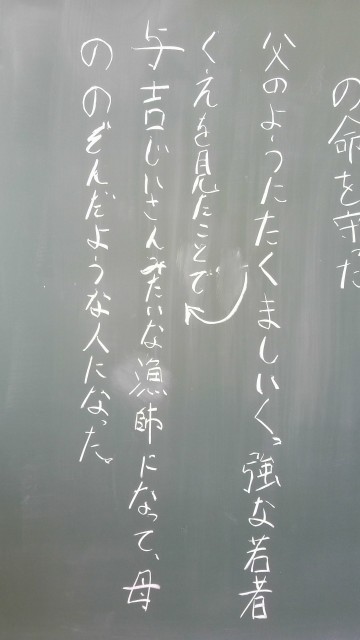 の命を守った
父のようにたくましいくっ強な若者
くえを見たことで
与吉じいさんみたいな漁師になって、母
ののぞんだような人になった。